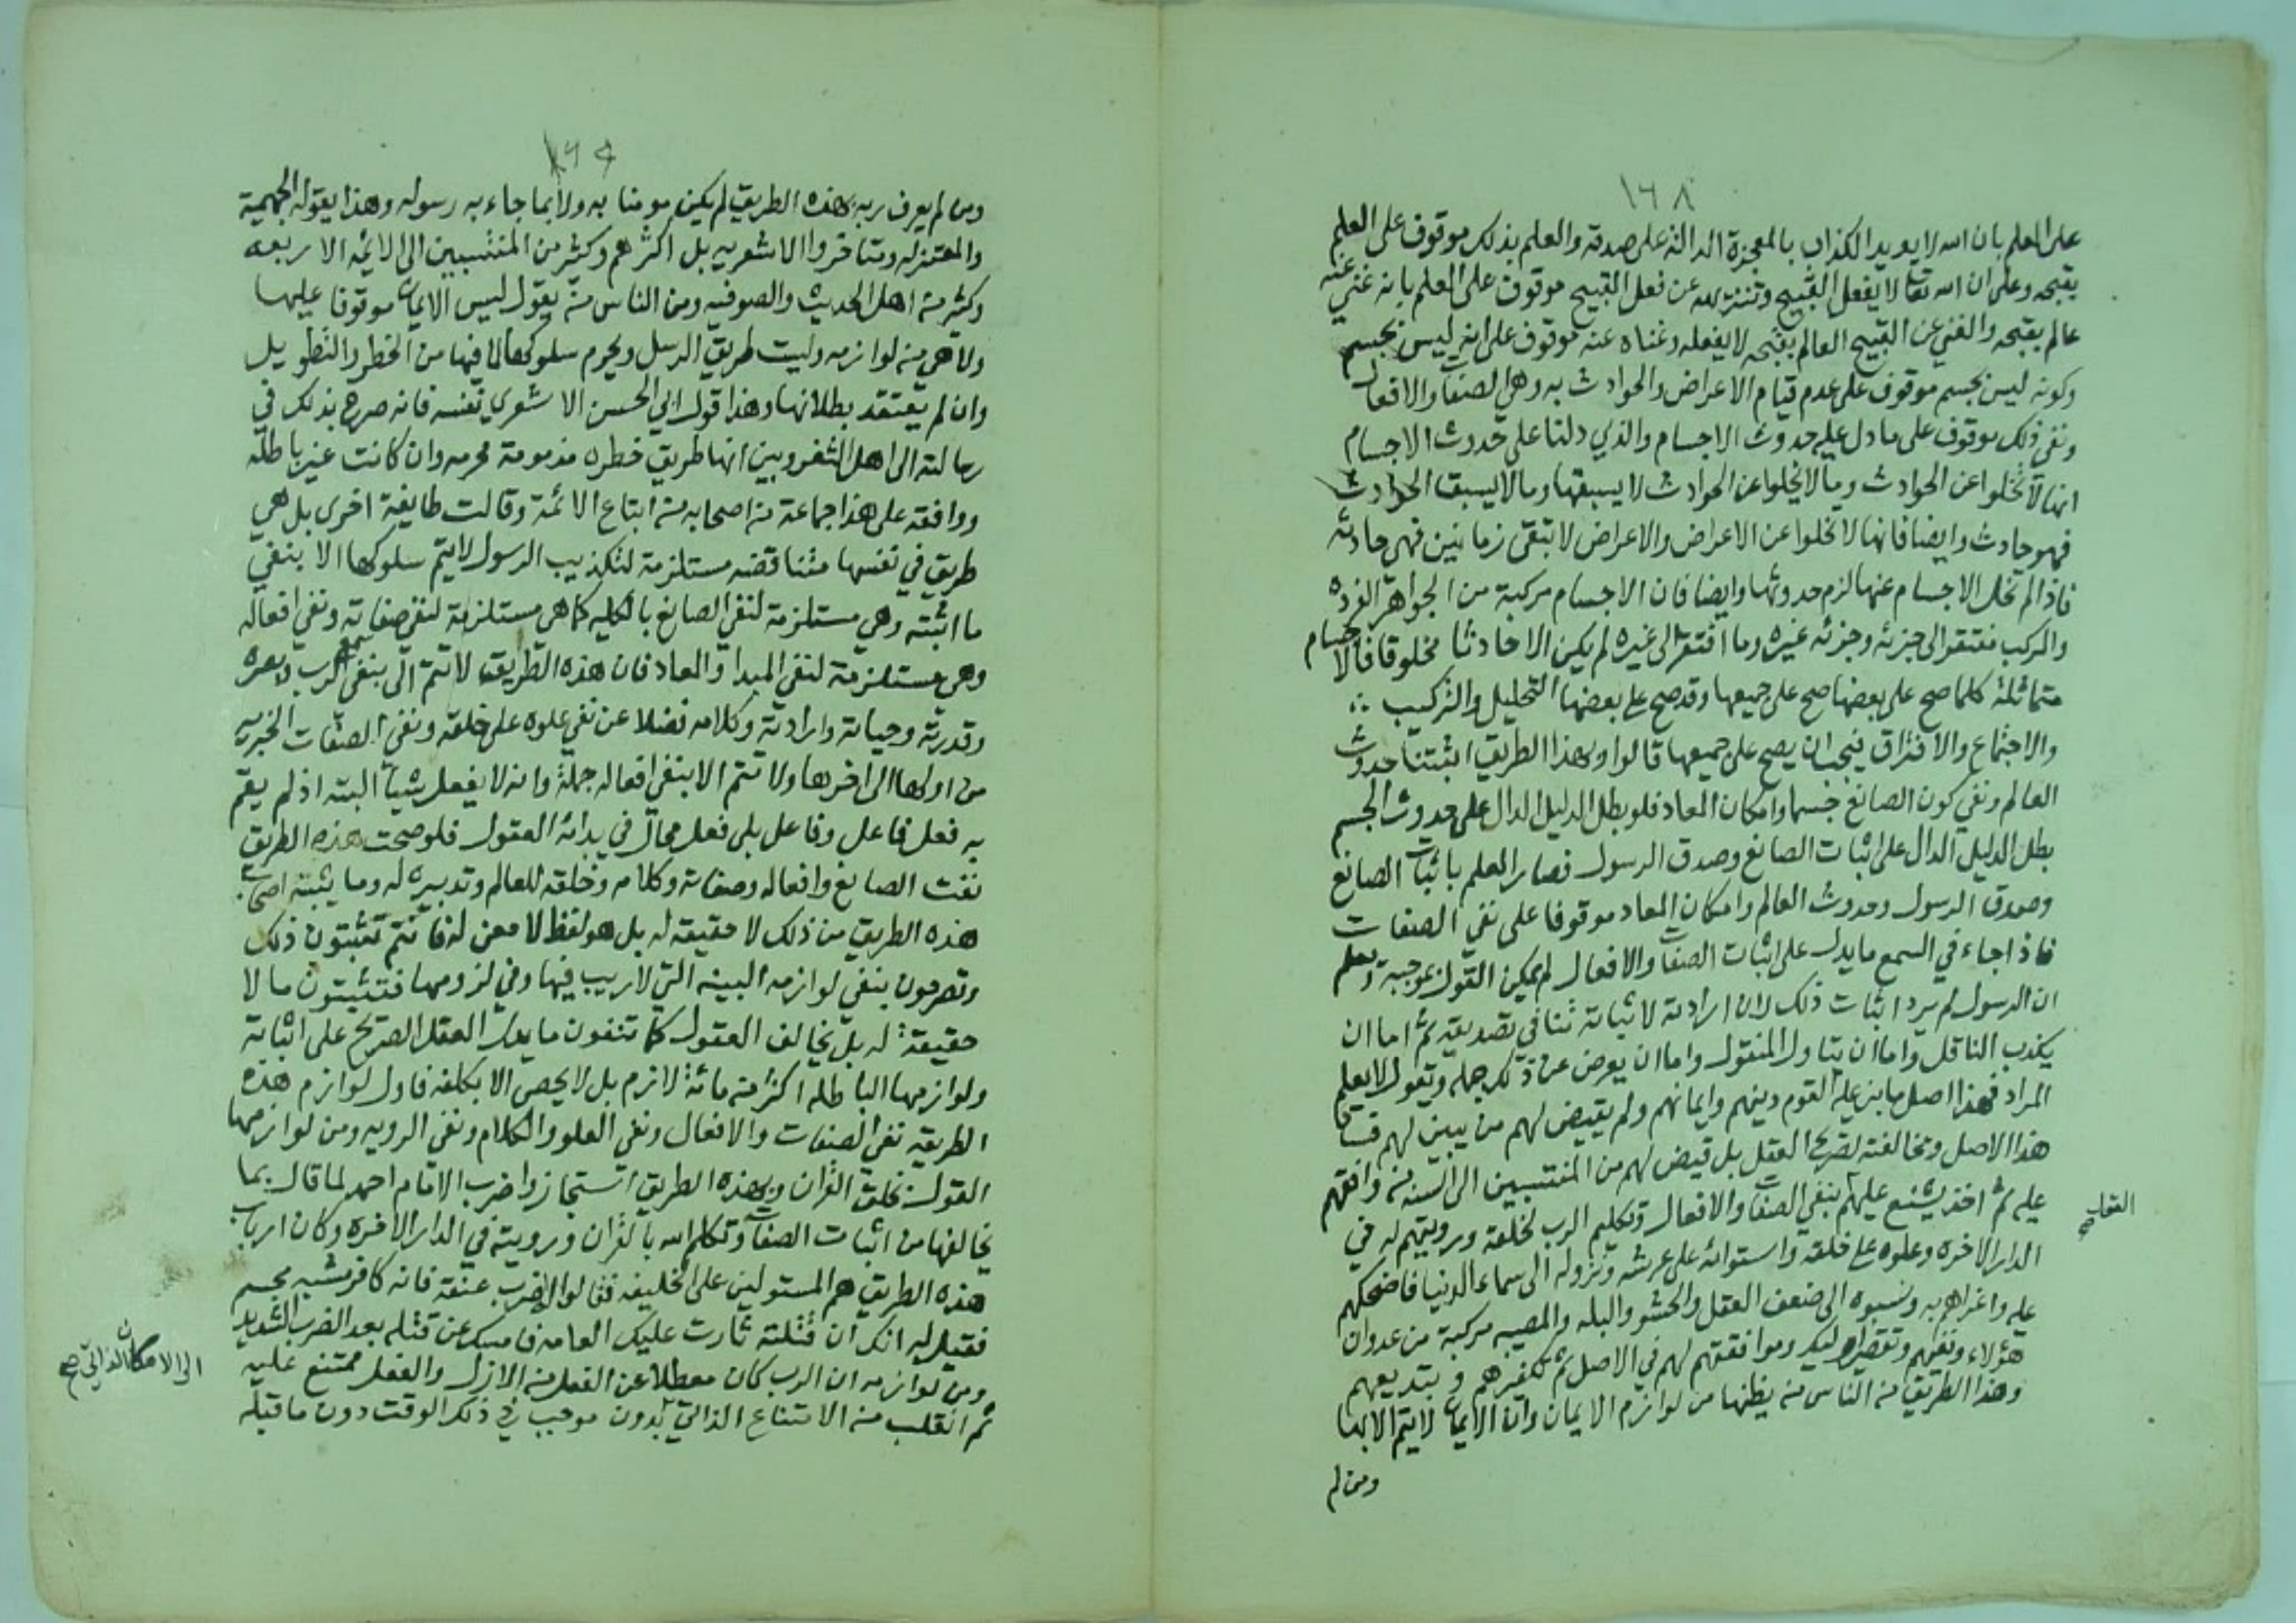 ١٦٨
على العلم بان الله لا يويد الكذاب بالمعجزة الدالة على صدقه والعلم بذلك موقوف على العلم
بقبحه وعلى ان الله تعالى لا يفعل القبيح وتنزيهه عن فعل القبيح موقوف على العلم بانه غني عنه
عالم بقبحه والغني عن القبيح العالم بقبحه لا يفعله وغناه عنه موقوف على انه ليس بجسم
وكونه ليس بجسم موقوف على عدم قيام الاعراض والحوادث به وهي الصفات والافعال
ونفي ذلك موقوف على ما دل عليه حدوث الاجسام والذي دلنا على حدوث الاجسام
انها لا تخلوا عن الحوادث وما لا يخلوا عن الحوادث لا يسبقها وما لا يسبق الحوادث
فهو حادث وايضا فانها لا تخلوا عن الاعراض والاعراض لا تبقى زمانين فهي حادثه
فاذا لم تخل الاجسام عنها لزم حدوثها وايضا فان الاجسام مركبة من الجواهر الفرده
والمركب مفتقر الى جزئه وجزئه غيره وما افتقر الى غيره لم يكن الا حادثا مخلوقا فالاجسام
متماثلة كلما صح على بعضها صح على جميعها وقد صح على بعضها التحليل والتركيب ∴
والاجتماع والافتراق فيجب ان يصح على جميعها قالوا وبهذا الطريق اثبتنا حدوث
العالم ونفي كون الصانع جسما وامكان المعاد فلو بطل الدليل الدال على حدوث الجسم
بطل الدليل الدال على اثبات الصانع وصدق الرسول فصار العلم باثبات الصانع
وصدق الرسول وحدوث العالم وامكان المعاد موقوفا على نفي الصفات
فاذا جاء في السمع ما يدل على اثبات الصفات والافعال لم يمكن القول بموجبه ونعلم
ان الرسول لم يرد اثبات ذلك لان ارادته لاثباته تنافي تصديقه ثم اما ان
يكذب الناقل واما ان يتاول المنقول واما ان يعرض عن ذلك جملة وتقول لا يعلم
المراد فهذا اصل ما بنى عليه القوم دينهم وايمانهم ولم يقيض لهم من يبين لهم فساد
هذا الاصل ومخالفته لصريح العقل بل قيض لهم من المنتسبين الى السنه من وافقهم
عليه ثم اخذ يشنع عليهم بنفي الصفات والافعال وتكليم الرب لخلقه ورويتهم له في
الدار الاخره وعلوه على خلقه واستوائه على عرشه ونزوله الى سماء الدنيا فاضحكهم
عليه واغراهم به ونسبوه الى ضعف العقل والحشو والبله والمصيبه مركبة من عدوان
هؤلاء وبغيهم وتقصير اوليك وموافقتهم لهم في الاصل ثم تكفيرهم وتبديعهم
وهذا الطريق من الناس من يظنها من لوازم الايمان وان الايمان لا يتم الا بها
ومن لم
ومن لم يعرف ربه بهذه الطريق لم يكن مومنا به ولا بما جاء به رسوله وهذا يقوله الجهمية
والمعتزله ومتاخروا الاشعريه بل اكثرهم وكثير من المنتسبين الى الائمه الاربعه
وكثير من اهل الحديث والصوفيه ومن الناس من يقول ليس الايمان موقوفا عليها
ولا هي من لوازمه وليست طريق الرسل ويحرم سلوكها لما فيها من الخطر والتطويل
وان لم يعتقد بطلانها وهذا قول ابي الحسن الاشعري نفسه فانه صرح بذلك في
رسالته الى اهل الثغر وبين انها طريق خطره مذمومة محرمه وان كانت غير باطله
ووافقه على هذا جماعة من اصحابه من اتباع الائمة وقالت طايفة اخرى بل هي
طريق في نفسها متناقضه مستلزمة لتكذيب الرسول لا يتم سلوكها الا بنفي
ما اثبته وهي مستلزمة لنفي الصانع بالكليه كما هي مستلزمة لنفي صفاته ونفي افعاله
وهي مستلزمة لنفي المبدا والمعاد فان هذه الطريق لا تتم الى بنفي سمع الرب وبصره
وقدرته وحياته وارادته وكلامه فضلا عن نفي علوه على خلقه ونفي الصفات الخبريه
من اولها الى اخرها ولا تتم الا بنفي افعاله جملة وانه لا يفعل شيأ البته اذ لم يقم
به فعل فاعل وفاعل بلى فعل محال في بدائه العقول فلو صحت هذه الطريق
نفت الصانع وافعاله وصفاته وكلامه وخلقه للعالم وتدبيره له وما يثبته اصحاب
هذه الطريق من ذلك لا حقيقه له بل هو لفظ لا معنى له فانتم تثبتون ذلك
وتصرحون بنفي لوازمه البينه التي لا ريب فيها وفي لزومها فتثبتون ما لا
حقيقة له بل يخالف العقول كما تنفون ما يدل العقل الصريح على اثباته
ولوازمها الباطله اكثر من مائة لازم بل لا يحصى الا بكلفه فاول لوازم هذه
الطريقه نفي الصفات والافعال ونفي العلو والكلام ونفي الرويه ومن لوازمها
القول بخلق القران وبهذه الطريق استجازوا ضرب الامام احمد لما قال بما
يخالفها من اثبات الصفات وتكلم الله بالقران ورويته في الدار الاخره وكان ارباب
هذه الطريق هم المستولين على الخليفه فقالوا اضرب عنقه فانه كافر مشبه مجسم
فقيل له انك ان قتلته ثارت عليك العامه فامسك عن قتله بعد الضرب الشديد
ومن لوازمه ان الرب كان معطلا عن الفعل من الازل والفعل ممتنع عليه
ثم انقلب من الامتناع الذاتي بدون موجب في ذلك الوقت دون ما قبله
الى الامكان الذاتي صح